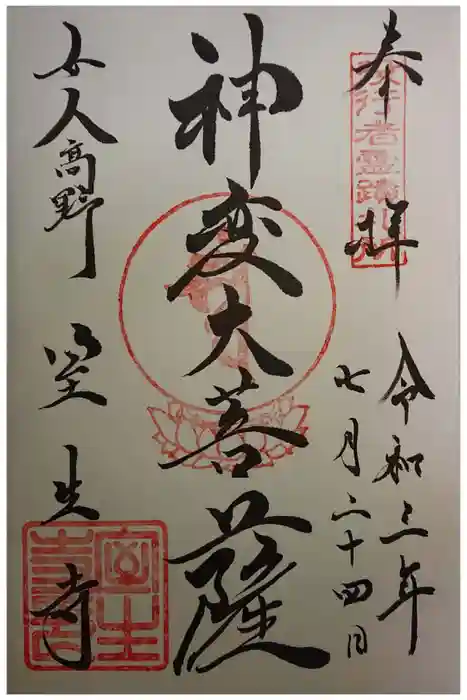 奉拝
役行者霊蹟札所
令和三年
七月二十四日
神変大菩薩
女人高野 室生寺
室生寺